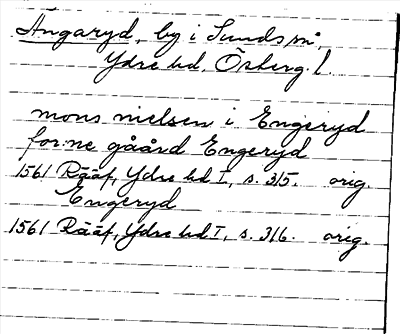 Ängaryd, by i Sunds sn,
Ydre hd, Östergl.
mons nielsen i Engeryd
for:ne gåård Engeryd
1561 Rääf, Ydre hd I, s. 315. orig.
Engeryd
1561 Rääf, Ydre hd I, s. 316. orig.